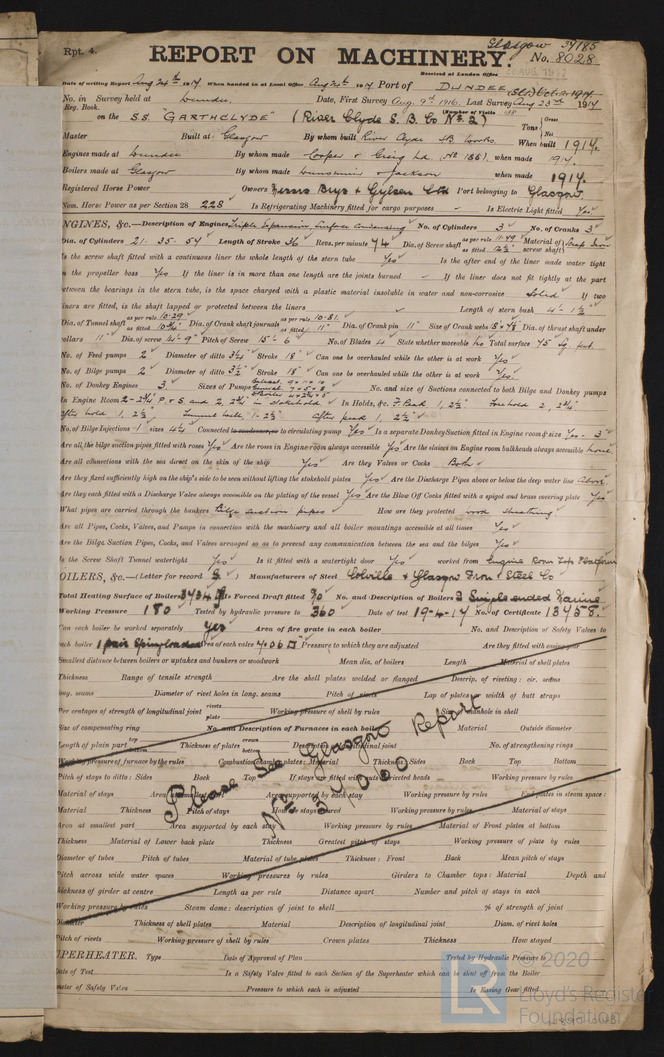 Rpt. 4.
Glasgow 34185
REPORT ON MACHINERY. No. 8028
Received at London Office
Date of writing Report Aug 24th 1914 When handed in at Local Office Aug 26th 1914 Port of DUNDEE
No. in Survey held at Dundee. Date, First Survey Aug. 9th 1916. Last Survey Aug 23rd 1914
Reg. Book. (Number of Visits
on the SS "GARTHCLYDE" (River Clyde S. B. Co No. 2) Tons Gross Net
Master Built at Glasgow By whom built River Clyde SB Works When built 1914.
Engines made at Dundee By whom made Cooper & Greig Ld. (No 155) when made 1914.
Boilers made at Glasgow By whom made Dunsmuir & Jackson when made 1914.
Registered Horse Power Owners Messrs Brys & Gylsen Ltd Port belonging to Glasgow.
Nom. Horse Power as per Section 28 228 Is Refrigerating Machinery fitted for cargo purposes - Is Electric Light fitted Yes
ENGINES, &c.—Description of Engines Triple Expansion Surface Condensing No. of Cylinders 3 No. of Cranks 3
Dia. of Cylinders 21. 35. 57 Length of Stroke 36 Revs. per minute 74 Dia. of Screw shaft as per rule 11.49 as fitted 12¼" Material of screw shaft Scrap Iron
Is the screw shaft fitted with a continuous liner the whole length of the stern tube Yes Is the after end of the liner made water tight
in the propeller boss Yes If the liner is in more than one length are the joints burned - If the liner does not fit tightly at the part
between the bearings in the stern tube, is the space charged with a plastic material insoluble in water and non-corrosive Solid If two
liners are fitted, is the shaft lapped or protected between the liners Length of stern bush 4'-1½"
Dia. of Tunnel shaft as per rule 10.29 as fitted 10¾" Dia. of Crank shaft journals as per rule 10.81 as fitted 11" Dia. of Crank pin 11" Size of Crank webs Dia. of thrust shaft under
collars 11" Dia. of screw 14'-9" Pitch of Screw 15'-6 No. of Blades 4 State whether moveable No Total surface 75 sq. feet.
No. of Feed pumps 2 Diameter of ditto 3¼" Stroke 18" Can one be overhauled while the other is at work Yes
No. of Bilge pumps 2 Diameter of ditto 3½" Stroke 18" Can one be overhauled while the other is at work Yes
No. of Donkey Engines 3 Sizes of Pumps No. and size of Suctions connected to both Bilge and Donkey pumps
In Engine Room 2-2¾" P & S. and 2, 2¾" in stokehold In Holds, &c. F. Peak 1, 2½" Fore hold 2, 2¾"
after hold 1, 2½" Tunnel well 1-2½" after peak 1, 2½"
No. of Bilge Injections 1 sizes Connected to condenser, or to circulating pump Yes Is a separate Donkey Suction fitted in Engine room & size Yes - 3"
Are all the bilge suction pipes fitted with roses Yes Are the roses in Engine room always accessible Yes Are the sluices on Engine room bulkheads always accessible none
Are all connections with the sea direct on the skin of the ship Yes Are they Valves or Cocks Both
Are they fixed sufficiently high on the ship's side to be seen without lifting the stokehold plates Yes Are the Discharge Pipes above or below the deep water line Above
Are they each fitted with a Discharge Valve always accessible on the plating of the vessel Yes Are the Blow Off Cocks fitted with a spigot and brass covering plate Yes
What pipes are carried through the bunkers Bilge suction pipes How are they protected wood sheathing
Are all Pipes, Cocks, Valves, and Pumps in connection with the machinery and all boiler mountings accessible at all times Yes
Are the Bilge Suction Pipes, Cocks, and Valves arranged so as to prevent any communication between the sea and the bilges Yes
Is the Screw Shaft Tunnel watertight Yes Is it fitted with a watertight door Yes worked from Engine Room Top Platform
BOILERS, &c.—(Letter for record S) Manufacturers of Steel Colville & Glasgow Iron & Steel Co
Total Heating Surface of Boilers 3434 Is Forced Draft fitted No No. and Description of Boilers 2 Single ended Marine
Working Pressure 180 Tested by hydraulic pressure to 360 Date of test 19-4-17 No. of Certificate 13458.
Can each boiler be worked separately Yes Area of fire grate in each boiler No. and Description of Safety Valves to
each boiler 1 pair Spring loaded Area of each valve 7.06 □" Pressure to which they are adjusted Are they fitted with easing gear
Smallest distance between boilers or uptakes and bunkers or woodwork Mean dia. of boilers Length Material of shell plates
Thickness Range of tensile strength Are the shell plates welded or flanged Descrip. of riveting: cir. seams
long. seams Diameter of rivet holes in long. seams Pitch of rivets Lap of plates or width of butt straps
Per centages of strength of longitudinal joint rivets plate Working pressure of shell by rules Size of manhole in shell
Size of compensating ring No. and Description of Furnaces in each boiler Material Outside diameter
Length of plain part top bottom Thickness of plates crown bottom Description of longitudinal joint No. of strengthening rings
Working pressure of furnace by the rules Combustion chamber plates: Material Thickness: Sides Back Top Bottom
Pitch of stays to ditto: Sides Back Top If stays are fitted with nuts or riveted heads Working pressure by rules
Material of stays Area Area supported by each stay Working pressure by rules End plates in steam space:
Material Thickness Pitch of stays How are stays secured Working pressure by rules Material of stays
Area at smallest part Area supported by each stay Working pressure by rules Material of Front plates at bottom
Thickness Material of Lower back plate Thickness Greatest pitch of stays Working pressure of plate by rules
Diameter of tubes Pitch of tubes Material of tube plates Thickness: Front Back Mean pitch of stays
Pitch across wide water spaces Working pressures by rules Girders to Chamber tops: Material Depth and
thickness of girder at centre Length as per rule Distance apart Number and pitch of stays in each
Working pressure by rules Steam dome: description of joint to shell % of strength of joint
Diameter Thickness of shell plates Material Description of longitudinal joint Diam. of rivet holes
Pitch of rivets Working pressure of shell by rules Crown plates Thickness How stayed
Please See Glasgow Report
No 34060
SUPERHEATER. Type Date of Approval of Plan Tested by Hydraulic Pressure to
Date of Test Is a Safety Valve fitted to each Section of the Superheater which can be shut off from the Boiler
Diameter of Safety Valve Pressure to which each is adjusted Is Easing Gear fitted
© 2020
Lloyd's Register
Foundation